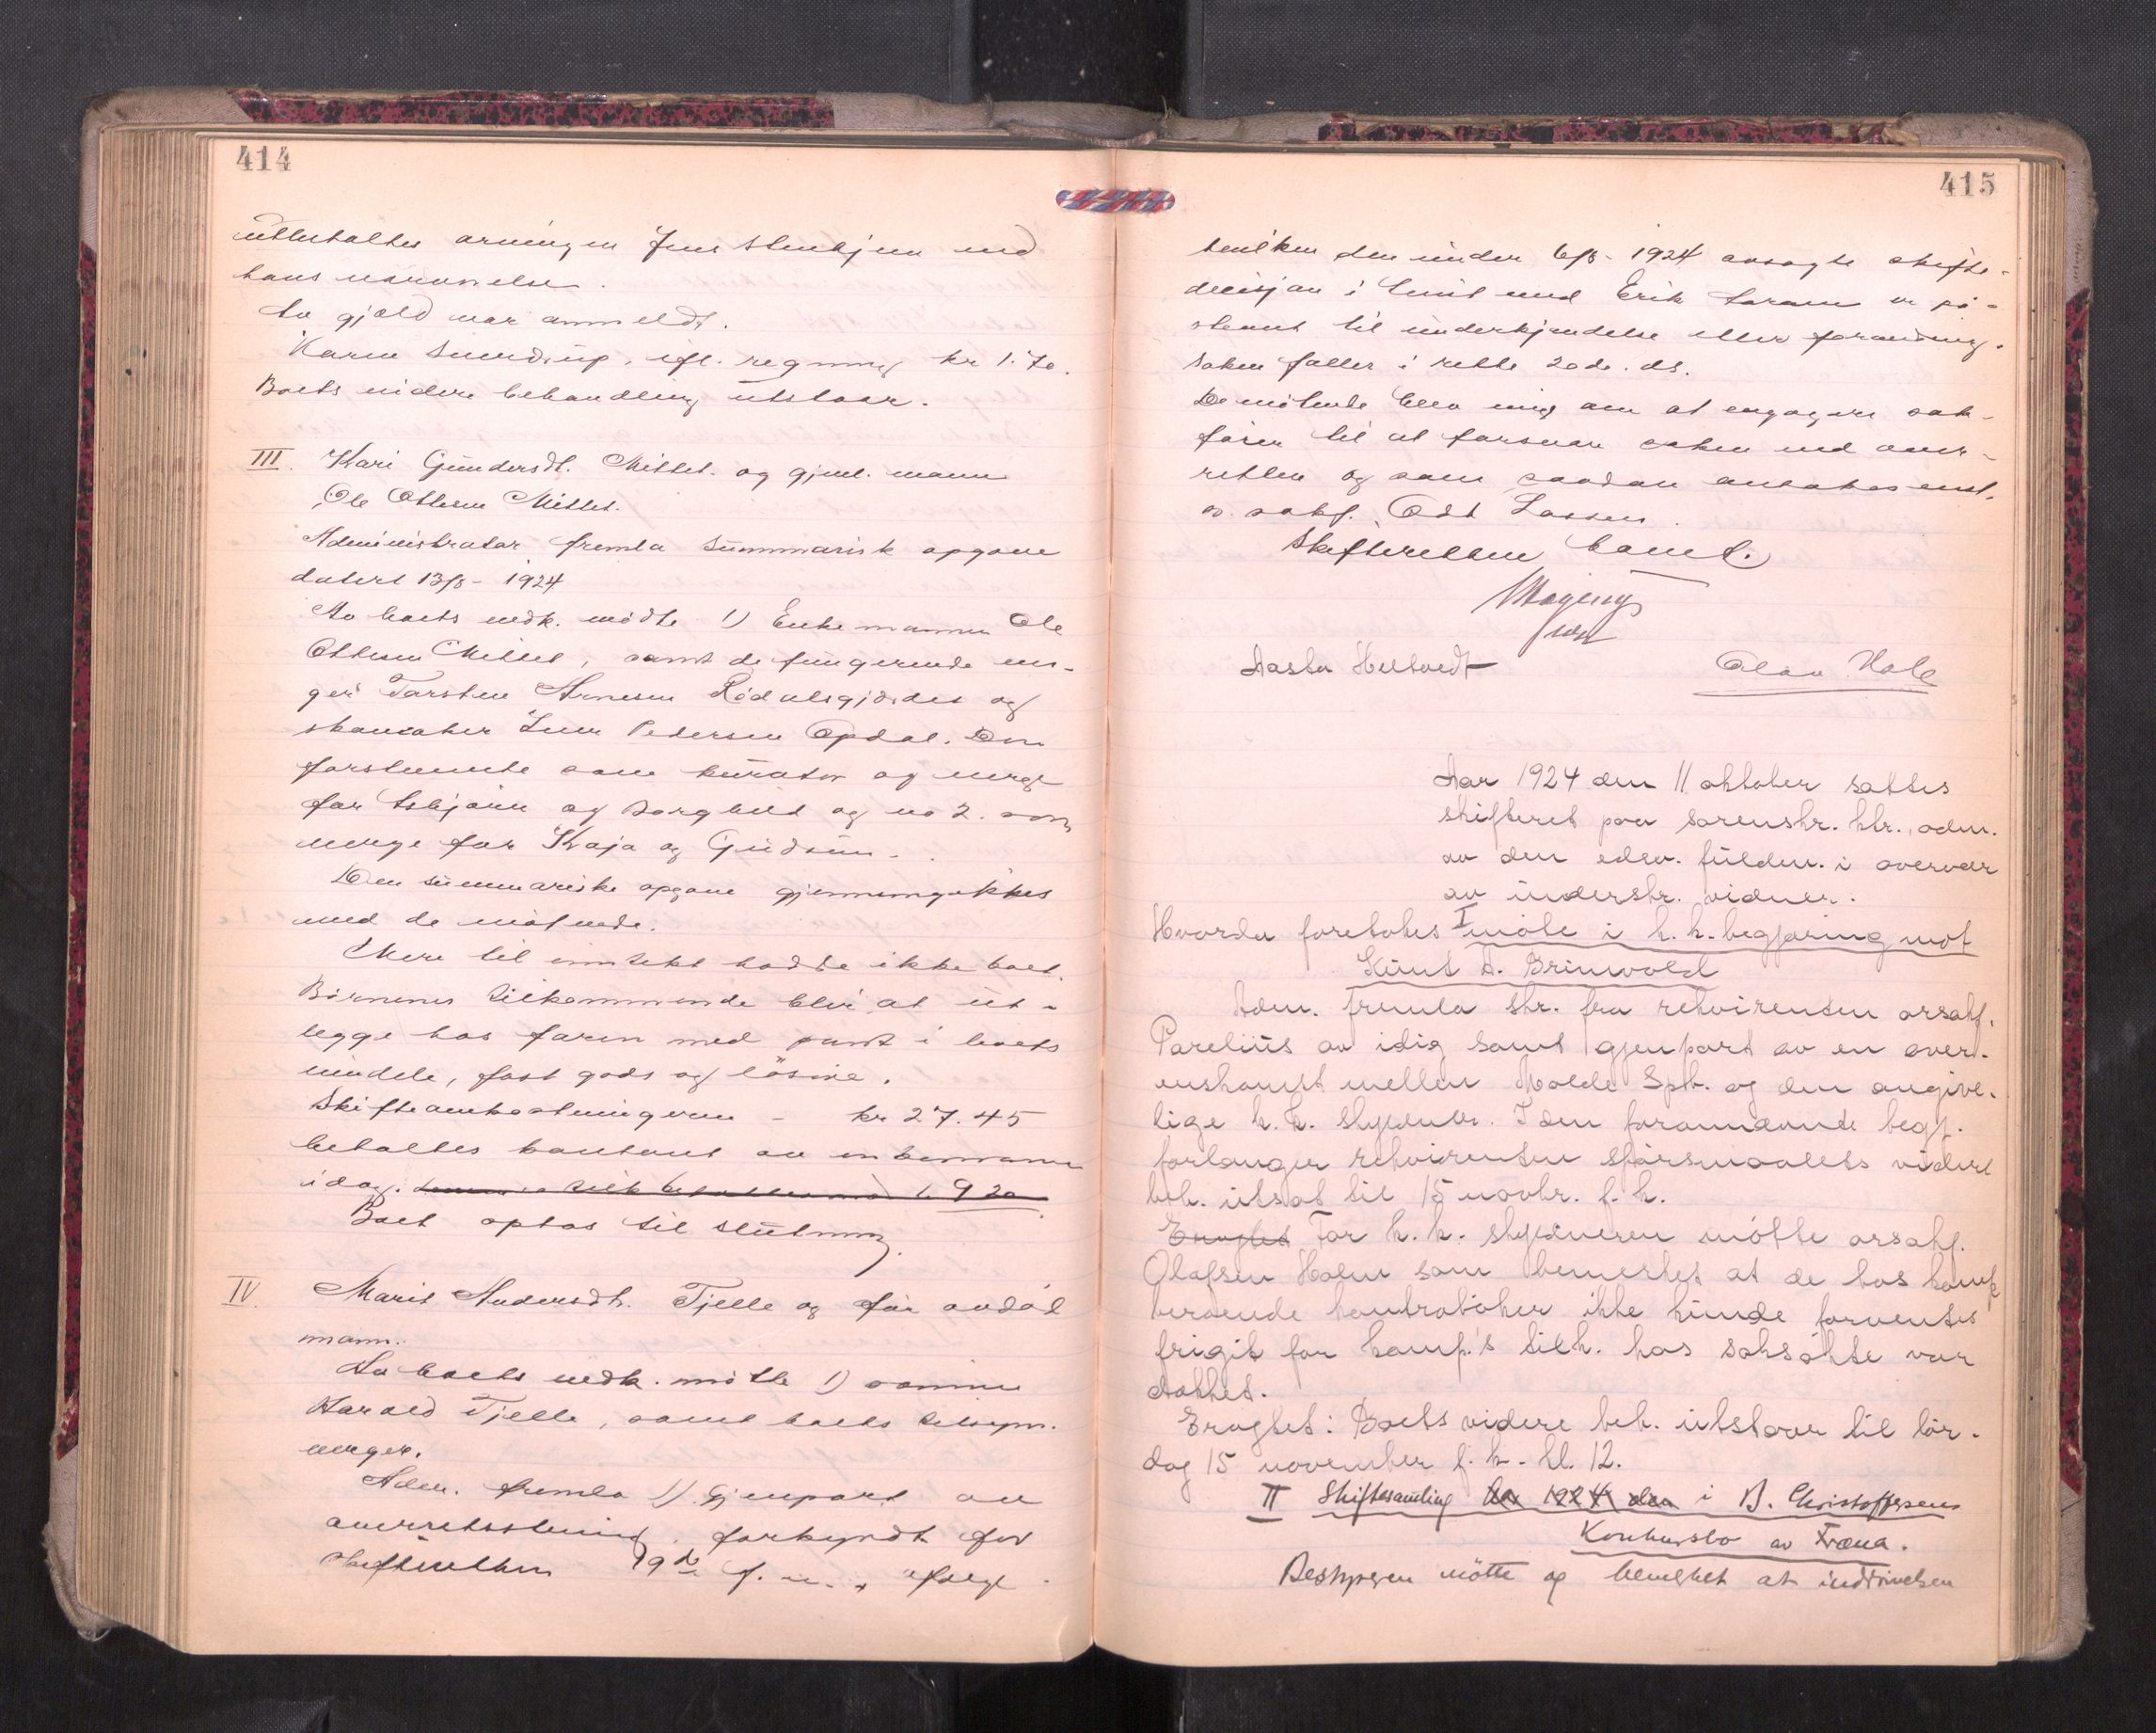 414
arvingen Jens Stenkjen ved
hans
Av gjæld var anmeldt.
Karen ifl. regning kr 1.70.
Boets videre behandling utstaar.
III. Kari Gundersdt. Mittet. og gjenl. mann
Ole Ottesen Mittet.
Administrator fremla summarisk opgave
datert 13/8 - 1924
Av boets vedk. mødte 1) Enkemannen Ole
Ottesen Mittet, samt de fungerende ver-
ger Torsten Arnesen Rødalsgjærdet og
skausaker Iver Pedersen Opdal. Den
førstnevnte som kurator og verge
for Asbjørn og Borghild og no 2. som
verge for Kaja og Gudrun.
Den summariske opgave gjennemgikkes
med de møtende.
Mere til inntekt hadde ikke boet.
Børnenes tilkommende blir at ut-
legge hos faren med pant i boets
eiendele, fast gods og løsøre.
Skifteomkostningerne - kr 27.45
betaltes kontant av enkemannen
idag.
Boet optas til slutning.
IV. Marit Andersdt. Tjelle og før avdød
mann.
Av boets vedk. møtte 1) sønnen
Harald Tjelle, samt boets tilsynsv.
verger.
Adm. fremla 1) Gjenpart av
overretsstevning forkyndt for
skifteretten 19de f. m., ifølge
415
hvilken den under 6/8 - 1924 avsagte skifte-
decisjon i tvist med Erik er på-
stevnt til underkjendelse eller forandring.
Saken faller i rette 20de ds.
De møtende blev enig om at engagere sak-
fører til at forsvare saken ved over-
retten og som saadan antakes enst.
o. sakf. Odd Larsen.
Skifteretten hævet.
Aasta Hestvedt Olav Hole
Aar 1924 den 11 oktober sattes
skifteret paa sorenskr. ktr., adm.
av den edsv. fuldm. i overvær
av underskr. vidner.
Hvorda foretokes I møte i k. k. begjæring mot
Knut A. Brinvold
Adm. fremla skr. fra rekvirenten orsakf.
Parelius av idag samt gjenpart av en over-
enskomst mellem Molde Spb. og den angive-
lige k. k. skyldner. I den forannævnte begj.
forlanger rekvirenten spørsmaalets videre
beh. utsat til 15 novbr. f. k.
Eragtet For k. k. skyldneren møtte orsakf.
Olafsen Holm som bemerket at de hos komp.
beroende kontrabøker ikke kunde forventes
frigit før komp.'s tilh. hos saksøkte var
dækket.
Eragtet: Boets videre beh. utstaar til lør-
dag 15 november f. k. kl. 12.
II Skiftesamling Aar 1924 den i B. Christoffersens
Konkursbo av Fræna.
Bestyreren møtte og bemerket at inddrivelsen